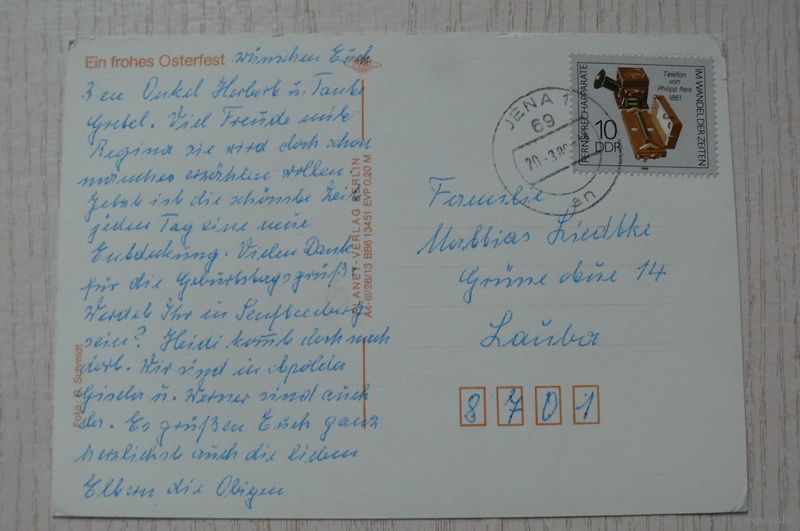 Ein frohes Osterfest wünschen Euch
3 en Onkel Herbert u. Tante
Gretel. Viel Freude mit
Regina sie wird doch schon
manches erzählen wollen.
Jetzt ist die schönste Zeit
jeden Tag eine neue
Entdeckung. Vielen Dank
für die Geburtstagsgrüße.
Werdet Ihr in Senftenberg
sein? Heidi kommt doch nach
dort. Wir sind in Apolda
Gisela u. Werner sind auch
da. Es grüßen Euch ganz
herzlichst auch die lieben
Eltern die Obigen
Foto: Schmidt
PLANET-VERLAG BERLIN
A4-III/26/13 BB6 13451 EVP 0,20 M
JENA 1
69
20.-3.89
FERNSPRECHAPPARATE
IM WANDEL DER ZEITEN
Telefon
von
Philipp Reis
1861
10
DDR
Familie
Matthias Liedtke
Grüne Aue 14
Lauba
8701